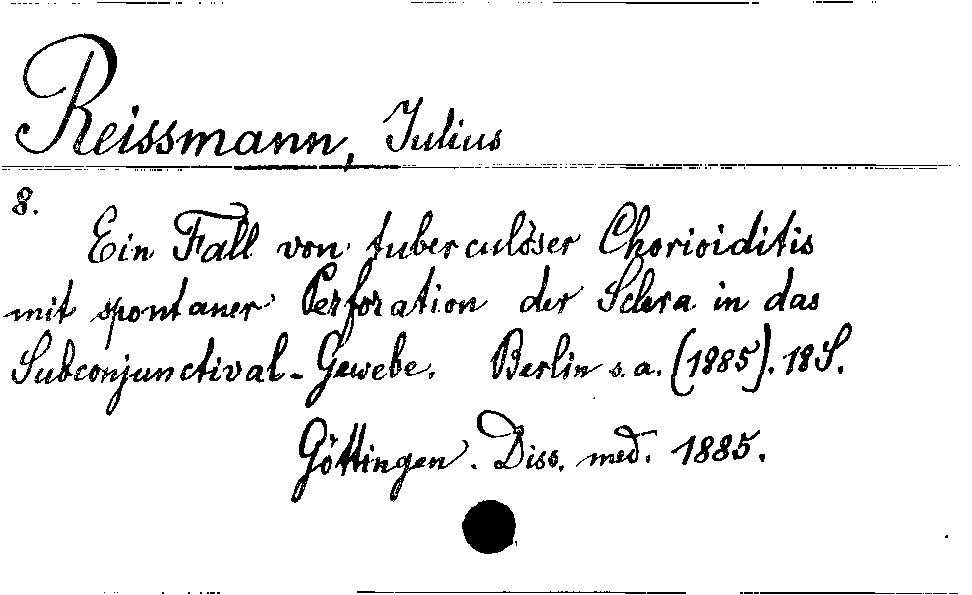 Reissmann, Julius
8.
Ein Fall von tuberculöser Chorioiditis
mit spontaner Perforation der Sclera in das
Subconjunctival-Gewebe. Berlin s.a. (1885). 18S.
Göttingen. Diss. med. 1885.